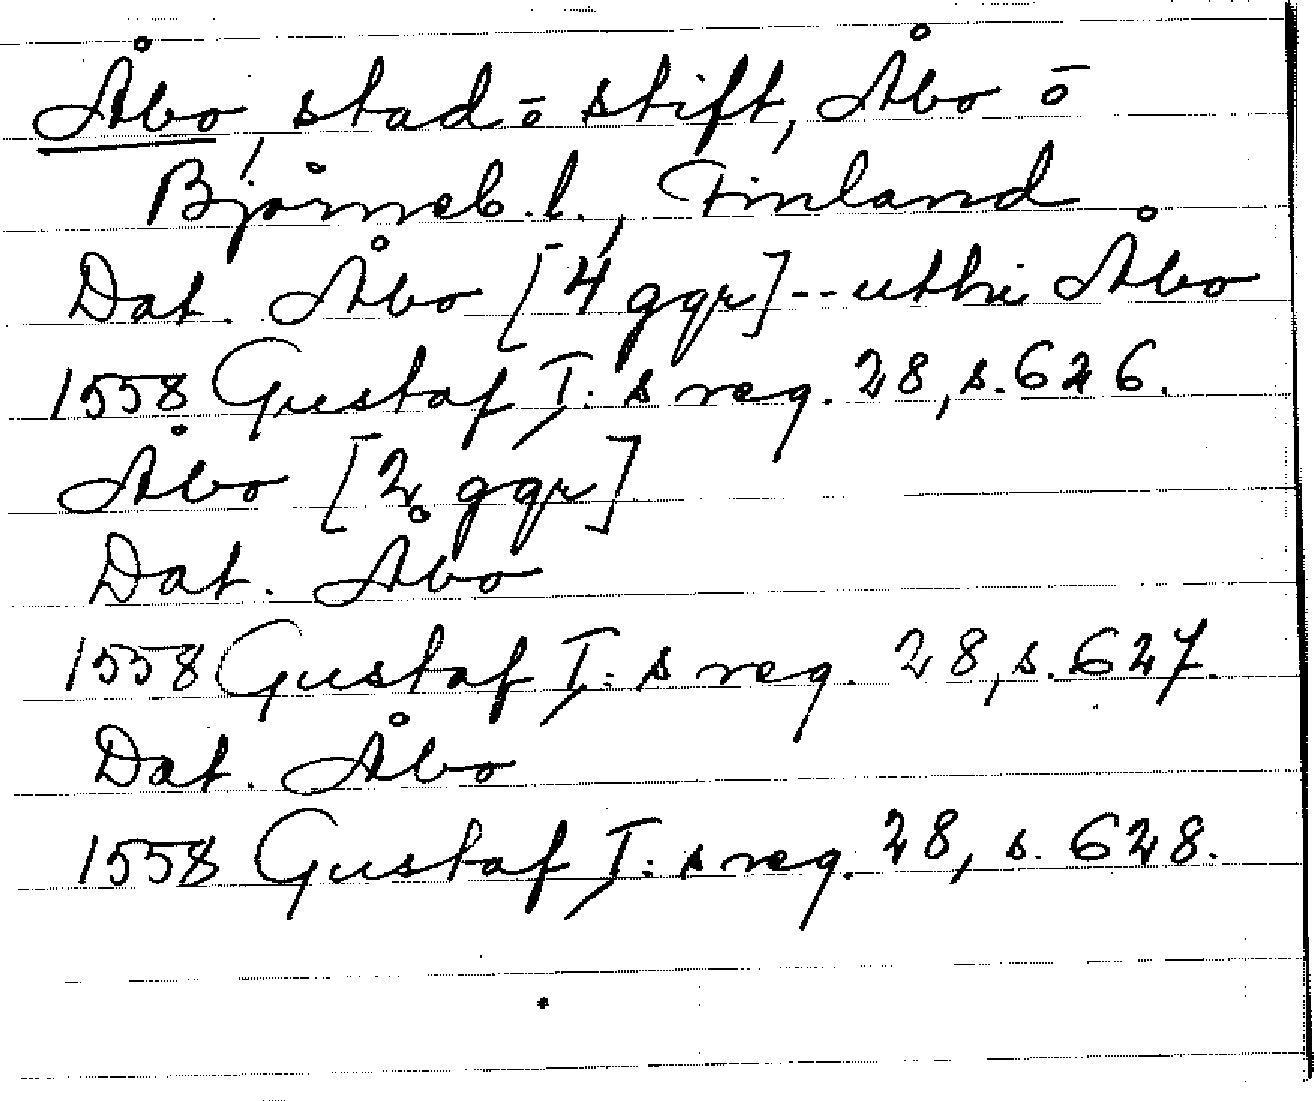 Åbo, stad ō stift, Åbo ō
Björneb. l., Finland
Dat. Åbo [4 ggr] -- uthi Åbo
1558 Gustaf I:s reg. 28, s. 626.
Åbo [2 ggr]
Dat. Åbo
1558 Gustaf I:s reg. 28, s. 627.
Dat. Åbo
1558 Gustaf I:s reg. 28, s. 628.